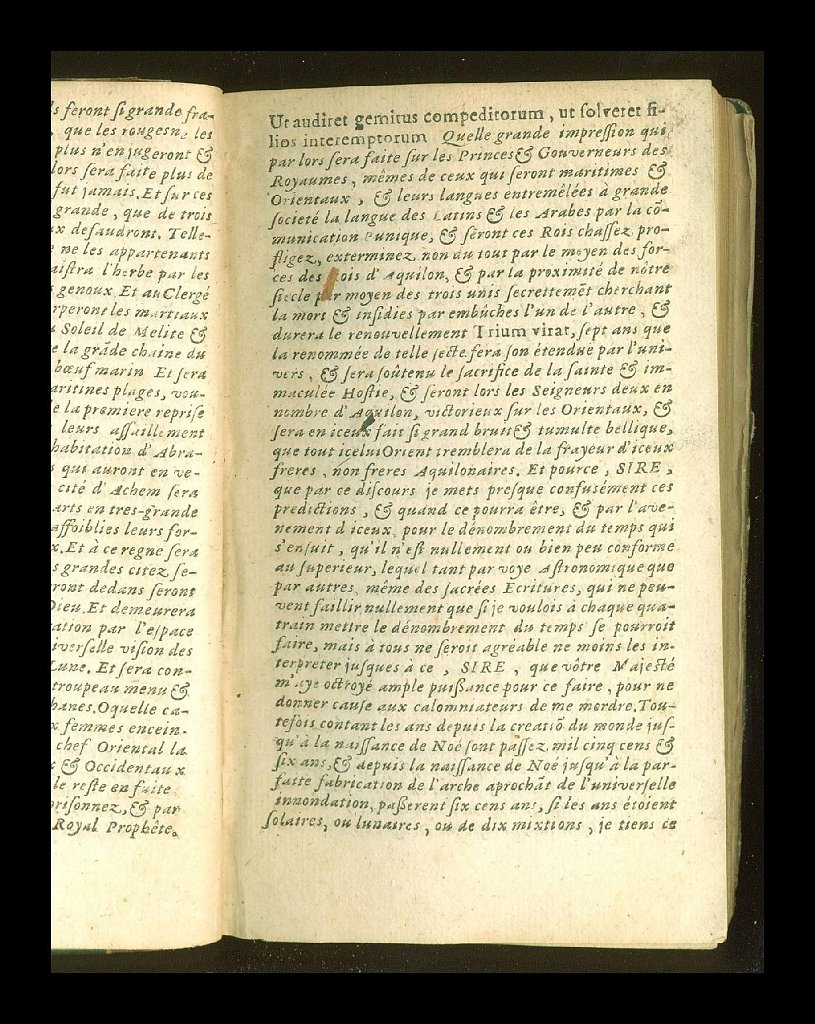 s feront si grande fra-
que les rougesne les
plus n'en jugeront &
lors sera faite plus de
fut jamais. Et sur ces
grande, que de trois
x defaudront. Telle-
ne les appartenants
aistra l'herbe par les
genoux. Et au Clergé
rperont les martiaux
Soleil de Melite &
e la grãde chaine du
bœuf marin Et sera
aritines plages, vou-
e la premiere reprise
leurs assaillement
habitation d'Abra-
s qui auront en ve-
cité d'Achem sera
arts en tres-grande
affoiblies leurs for-
x. Et à ce regne sera
s grandes citez se-
ront dedans seront
Dieu. Et demeurera
ation par l'espace
iverselle vision des
Lune. Et sera con-
troupeau menu &
hanes. O quelle ca-
x femmes encein-
chef Oriental la
& Occidentaux
le reste en fuite
prisonnez, & par
Royal Prophête,
Ut audiret gemitus compeditorum, ut solveret fi-
lios interemptorum Quelle grande impression qui
par lors sera faite sur les Princes & Gouverneurs des
Royaumes, mêmes de ceux qui seront maritimes &
Orientaux, & leurs langues entremêlées à grande
societé la langue des Latins & les Arabes par la cō-
munication Punique, & seront ces Rois chassez pro-
fligez, exterminez non du tout par le moyen des for-
ces des Rois d'Aquilon, & par la proximité de nôtre
siecle par moyen des trois unis secrettemēt cherchant
la mort & insidies par embûches l'un de l'autre, &
durera le renouvellement Triumvirat, sept ans que
la renommée de telle secte fera son étenduë par l'uni-
vers, & sera soûtenu le sacrifice de la sainte & im-
maculée Hostie, & seront lors les Seigneurs deux en
nombre d'Aquilon, victorieux sur les Orientaux, &
sera en iceux fait si grand bruit & tumulte bellique,
que tout icelui Orient tremblera de la frayeur d'iceux
freres, non freres Aquilonaires. Et pource, SIRE,
que par ce discours je mets presque confusément ces
predictions, & quand ce pourra être, & par l'ave-
nement d iceux, pour le dénombrement du temps qui
s'ensuit, qu'il n'est nullement ou bien peu conforme
au superieur, lequel tant par voye Astronomique que
par autres, même des sacrées Ecritures, qui ne peu-
vent faillir nullement que si je voulois à chaque qua-
train mettre le dénombrement du temps se pourroit
faire, mais à tous ne seroit agréable ne moins les in-
terpreter jusques à ce, SIRE, que vôtre Majesté
m'aye octroyé ample puissance pour ce faire, pour ne
donner cause aux calomniateurs de me mordre. Tou-
tefois contant les ans depuis la creatiõ du monde jus-
qu'à la naissance de Noé sont passez mil cinq cens &
six ans, & depuis la naissance de Noé jusqu'à la par-
faite fabrication de l'arche aprochãt de l'universelle
innondation, passerent six cens ans, si les ans étoient
solaires, ou lunaires, ou de dix mixtions, je tiens ce